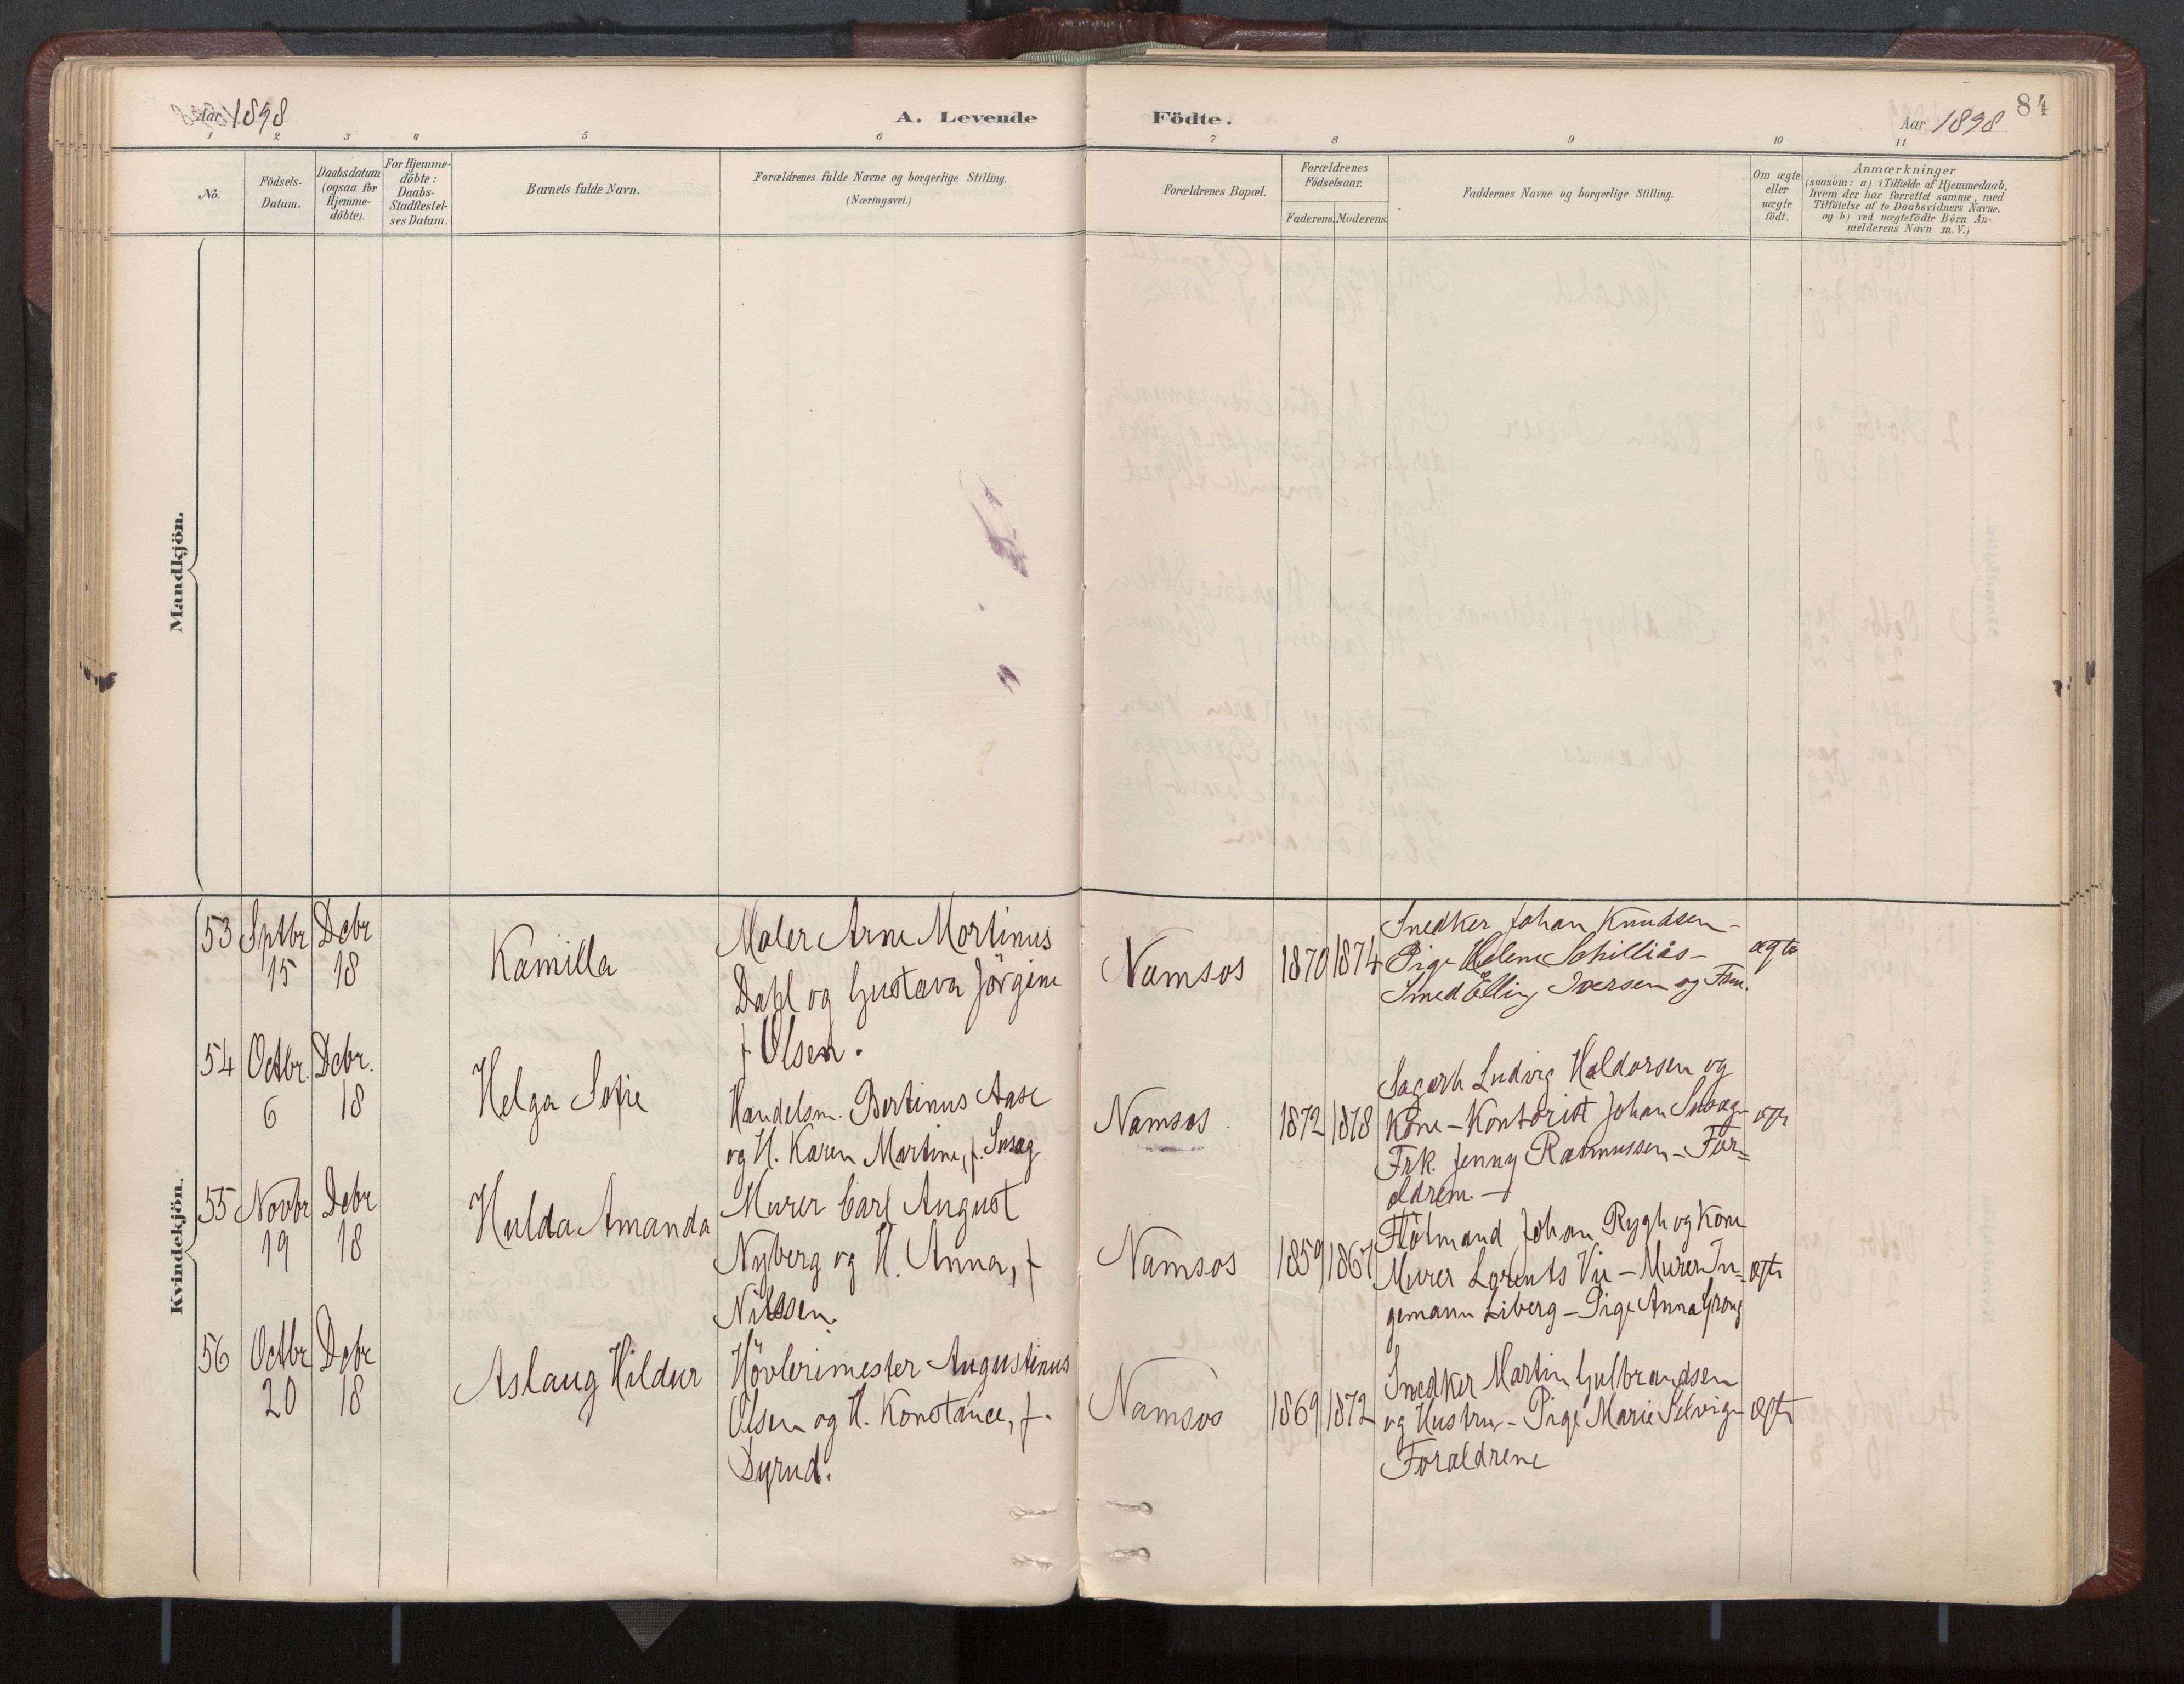 Aar 1898
A. Levende Födte.
Aar 1898
84
1 2 3 4 5 6 7 8 9 10 11
No.
Födsels-
Datum.
Daabsdatum
(ogsaa for
Hjemme-
döbte).
For Hjemme-
döbte:
Daabs-
Stadfæstel-
ses Datum.
Barnets fulde Navn.
Forældrenes fulde Navne og borgerlige Stilling.
(Næringsvei.)
Forældrenes Bopæl.
Forældrenes
Födselsaar.
Faderens. Moderens.
Faddernes Navne og borgerlige Stilling.
Om ægte
eller
uægte
födt.
Anmærkninger
(saasom: a) i Tilfælde af Hjemmedaab,
hvem der har forrettet samme, med
Tilföielse af to Daabsvidners Navne,
og b) ved uægtefödte Börn An-
melderens Navn m. V.)
Mandkjön.
Kvindekjön.
53 Sptbr Dcbr
15 18
Kamilla
Maler Arne Martinus
Dahl og Gustava Jörgine
f Olsen.
Namsos
1870 1874
Snedker Johan Knudsen –
Pige Helene Schilliås –
Smed Elling Iversen og Fru.
ægte
54 Octbr. Dcbr.
6 18
Helga Sofie
Handelsm. Bertinus Aase
og H. Karen Martine, f.
Namsos
1872 1878
Sagarb Ludvig Haldorsen og
Kone – Kontorist Johan
Frk. Jenny Rasmussen – For=
ældrene. –
ægte
55 Novbr Dcbr
19 18
Hulda Amanda
Murer Carl August
Nyberg og H. Anna, f
Nilssen.
Namsos
1859 1867
Johan Rygh og Kone
Murer Lorents Vie – Murer In-
gemann Liberg – Pige Anna Grong
ægte
56 Octbr Dcbr
20 18
Aslaug Hildur
Hövlerimester Augustinus
Olsen og H. Konstance, f.
Dyrud.
Namsos
1869 1872
Snedker Martin Gulbrandsen
og Hustru – Pige Marie Selvig –
Forældrene
ægte